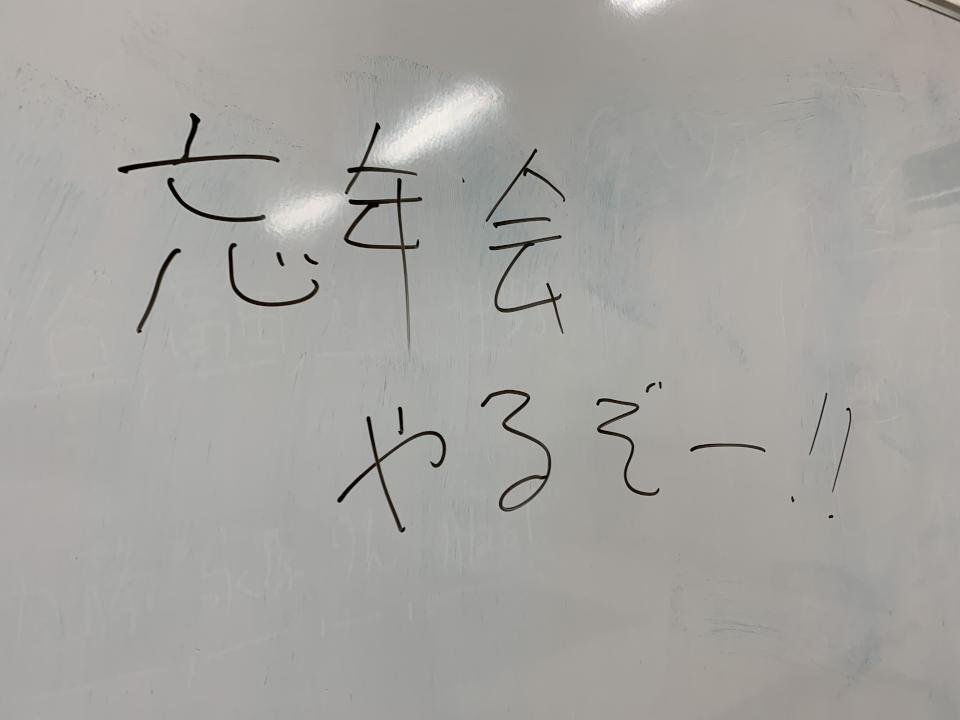 忘年会
やるぞー!!